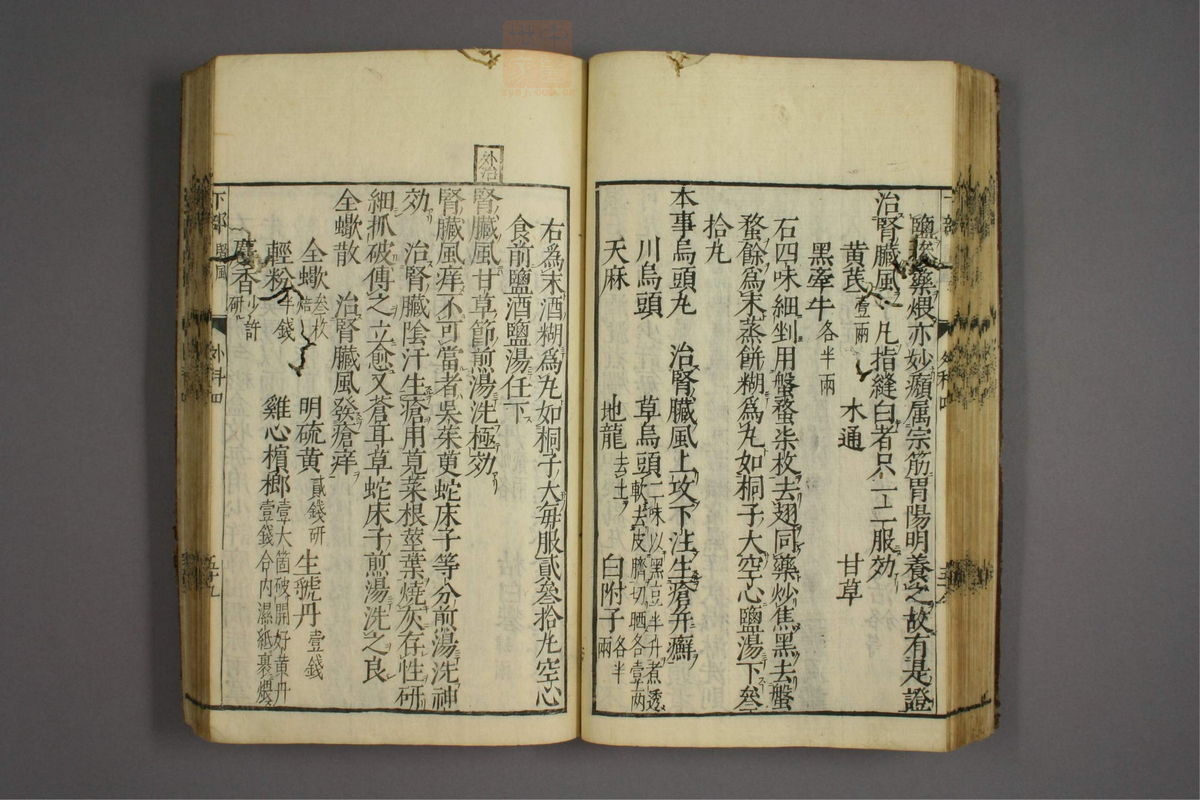 鹽淹藥煨亦妙癩属宗筋胃陽明養之故有是證
治腎臓風 凡指縫白者只一二服効
黄茋壹兩 木通 甘草
黒牽牛各半兩
右四味細剉用盤蝥柒枚去翅同藥炒焦黒去盤
蝥餘爲末蒸餅糊爲丸如桐子大空心鹽湯下叄
拾丸
本事烏頭丸 治腎臓風上攻下注生瘡并癬
川烏頭 草烏頭二味以黒豆半升煮透軟去皮臍切晒各壹兩
天麻 地龍去土 白附子各半兩
右爲末酒糊爲丸如桐子大毎服貳叄拾丸空心
食前鹽酒鹽湯任下
外治
腎臓風甘草節煎湯洗極効
腎臓風痒不可當者吳茱萸蛇床子等分煎湯洗神
効 治腎臓陰汗生瘡用莧菜根莖葉燒灰存性研
細抓破傅之立愈又蒼耳草蛇床子煎湯洗之良
全蠍散 治腎臓風發瘡痒
全蠍叄枚焙 明硫黄貳錢研 生虢丹壹錢
輕粉半錢 雞心檳榔壹大箇破開好黄丹壹錢合内濕紙裹煨
麝香少許研
下部 腎風 外科四